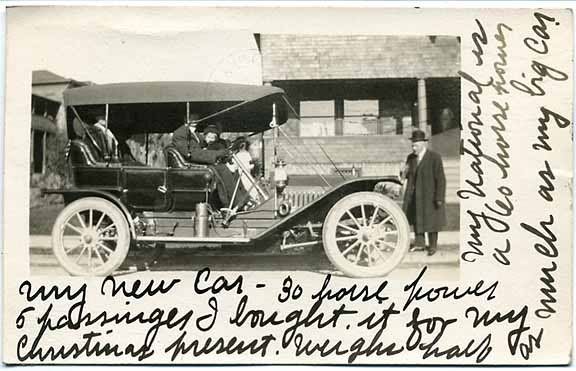 my new Car - 30 horse power
5 passinger I bought it for my
Christmas present. weighs half
as much as my big Car
my National is
a 60 horse power